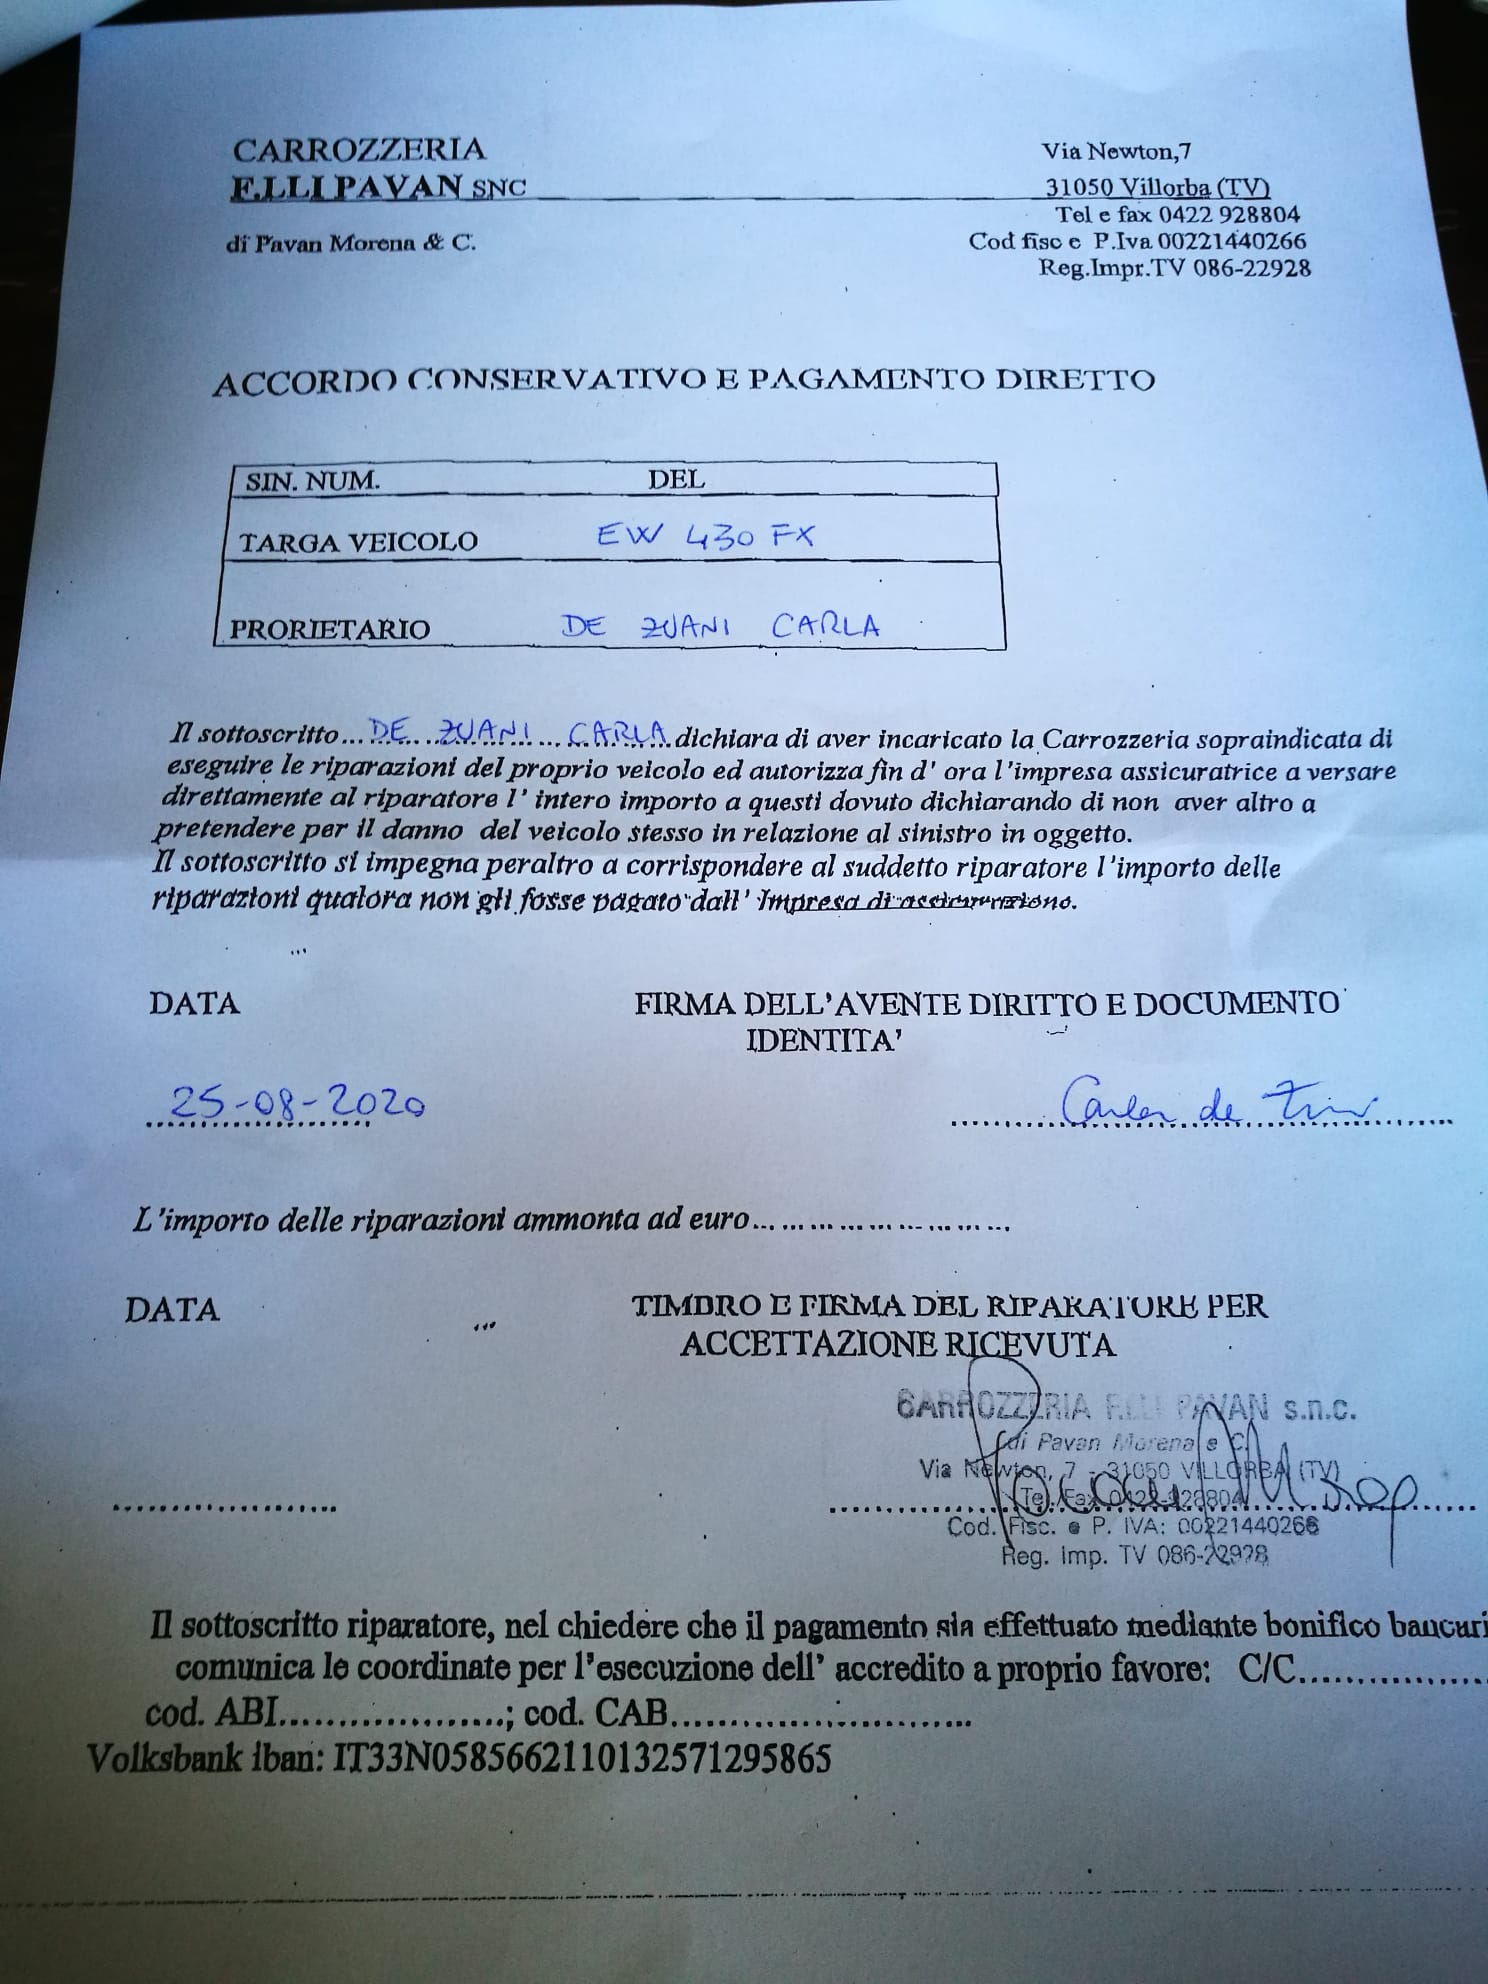 CARROZZERIA
F.LLI PAVAN SNC
di Pavan Morena & C.
Via Newton,7
31050 Villorba (TV)
Tel e fax 0422 928804
Cod fisc e P.Iva 00221440266
Reg.Impr.TV 086-22928
ACCORDO CONSERVATIVO E PAGAMENTO DIRETTO
SIN. NUM. DEL
TARGA VEICOLO EW 430 FX
PRORIETARIO DE ZUANI CARLA
Il sottoscritto... DE ZUANI CARLA dichiara di aver incaricato la Carrozzeria sopraindicata di
eseguire le riparazioni del proprio veicolo ed autorizza fin d' ora l'impresa assicuratrice a versare
direttamente al riparatore l' intero importo a questi dovuto dichiarando di non aver altro a
pretendere per il danno del veicolo stesso in relazione al sinistro in oggetto.
Il sottoscritto si impegna peraltro a corrispondere al suddetto riparatore l'importo delle
riparazioni qualora non gli fosse pagato dall' Impresa di assicurazione.
DATA
FIRMA DELL'AVENTE DIRITTO E DOCUMENTO
IDENTITA'
25-08-2020
Carla de
L'importo delle riparazioni ammonta ad euro..............................
DATA
TIMBRO E FIRMA DEL RIPARATORE PER
ACCETTAZIONE RICEVUTA
CARROZZERIA F.LLI PAVAN s.n.c.
di Pavan Morena e C.
Via Newton, 7 - 31050 VILLORBA (TV)
Tel./Fax 0422-928804
Cod. Fisc. e P. IVA: 00221440266
Reg. Imp. TV 086-22928
Il sottoscritto riparatore, nel chiedere che il pagamento sia effettuato mediante bonifico bancari
comunica le coordinate per l'esecuzione dell' accredito a proprio favore: C/C................
cod. ABI....................; cod. CAB...........................
Volksbank iban: IT33N0585662110132571295865